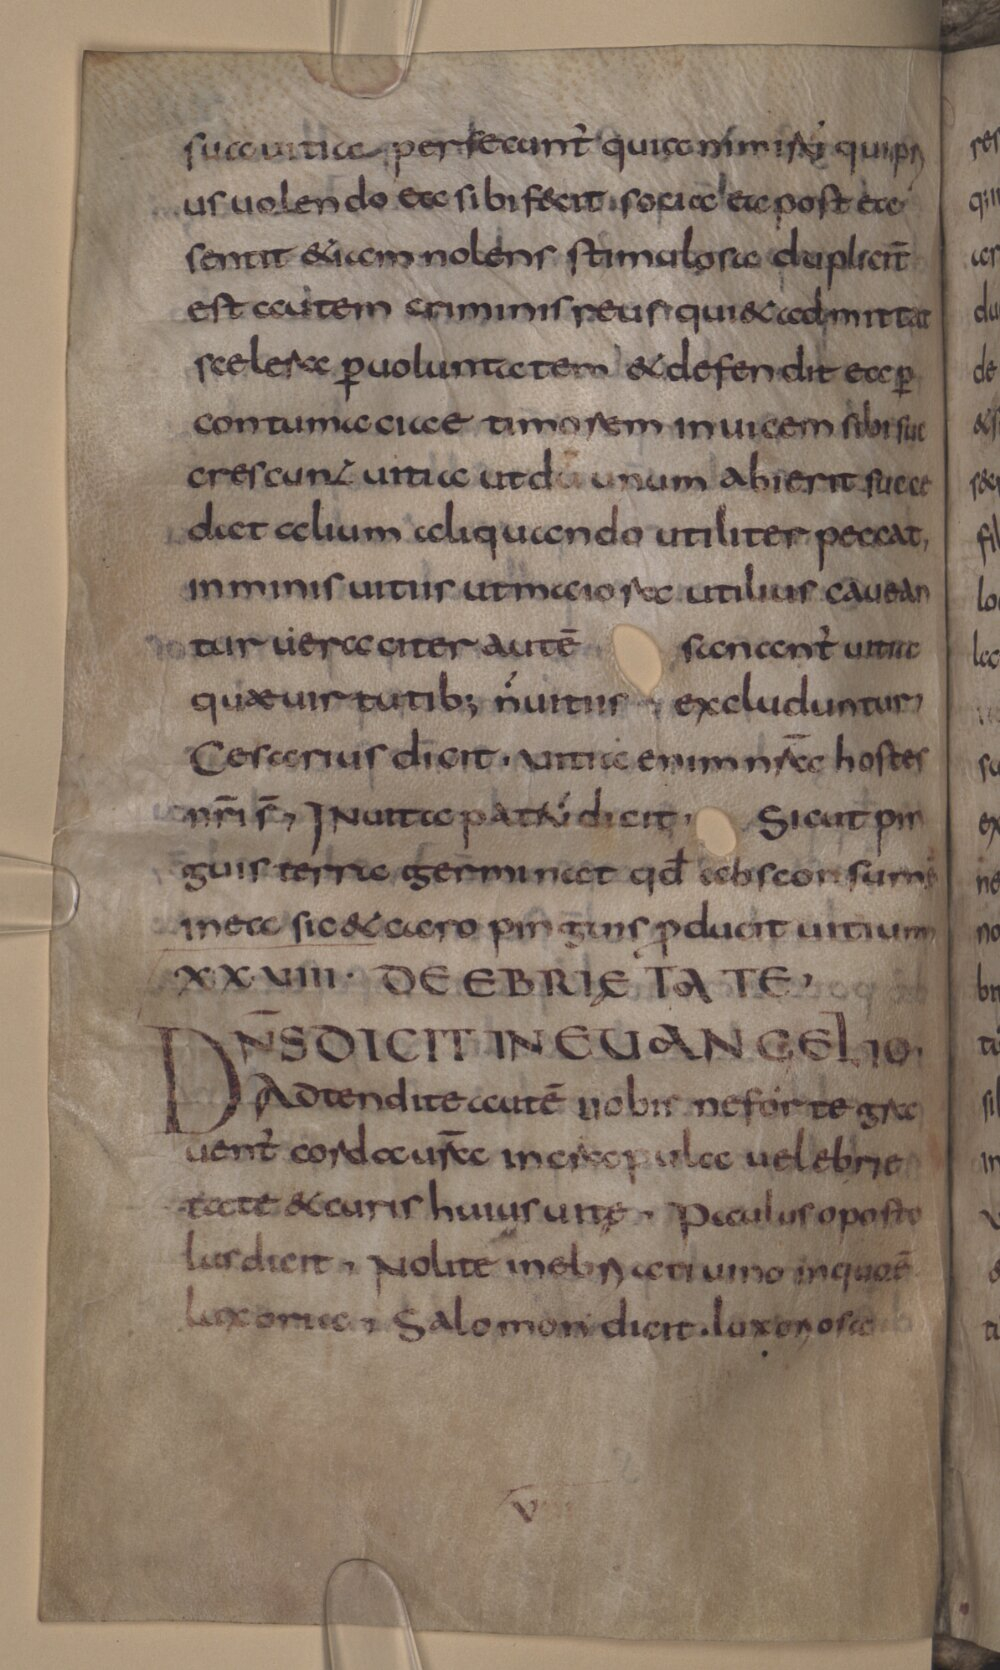 sua uitia persecunt̄ quia nimirū qui pri
us uolendo ea sibi fecit socia ea post ea
sentit & iam nolens stimulosa dupliciť
est autem criminis reus qui & admittat
scelera p̱ uoluntatem & defendit ea p̱
contumacia timorem inuicem sibi suc
crescunt uitia ut dū unum abierit succe
dat alium aliquando utiliter peccat,
in minis uitiis ut maiora utilius cauean
tur ueraciter autē sanant̄ uitia
quæ uirtutib; ń uitiis excluduntur,
Cesarius dicit. uitia enim nr̄a hostes
nr̄i s̄, In uita patrū dicit, Sicut pin
guis terra germinat qđ absconsum
in ea sic & caro pinguis ꝓducit uitium
XXVIII. DE EBRIETATE,
DN̄S DICIT IN EUANGELIO.
Adtendite autē uobis ne forte gra
uent̄ corda ur̄a in crapula uel ebrie
tate & curis huius uitę, Paulus aposto
lus dicit, Nolite inebriari uino in quo ē
luxoria, Salomon dicit. luxoriosa
V